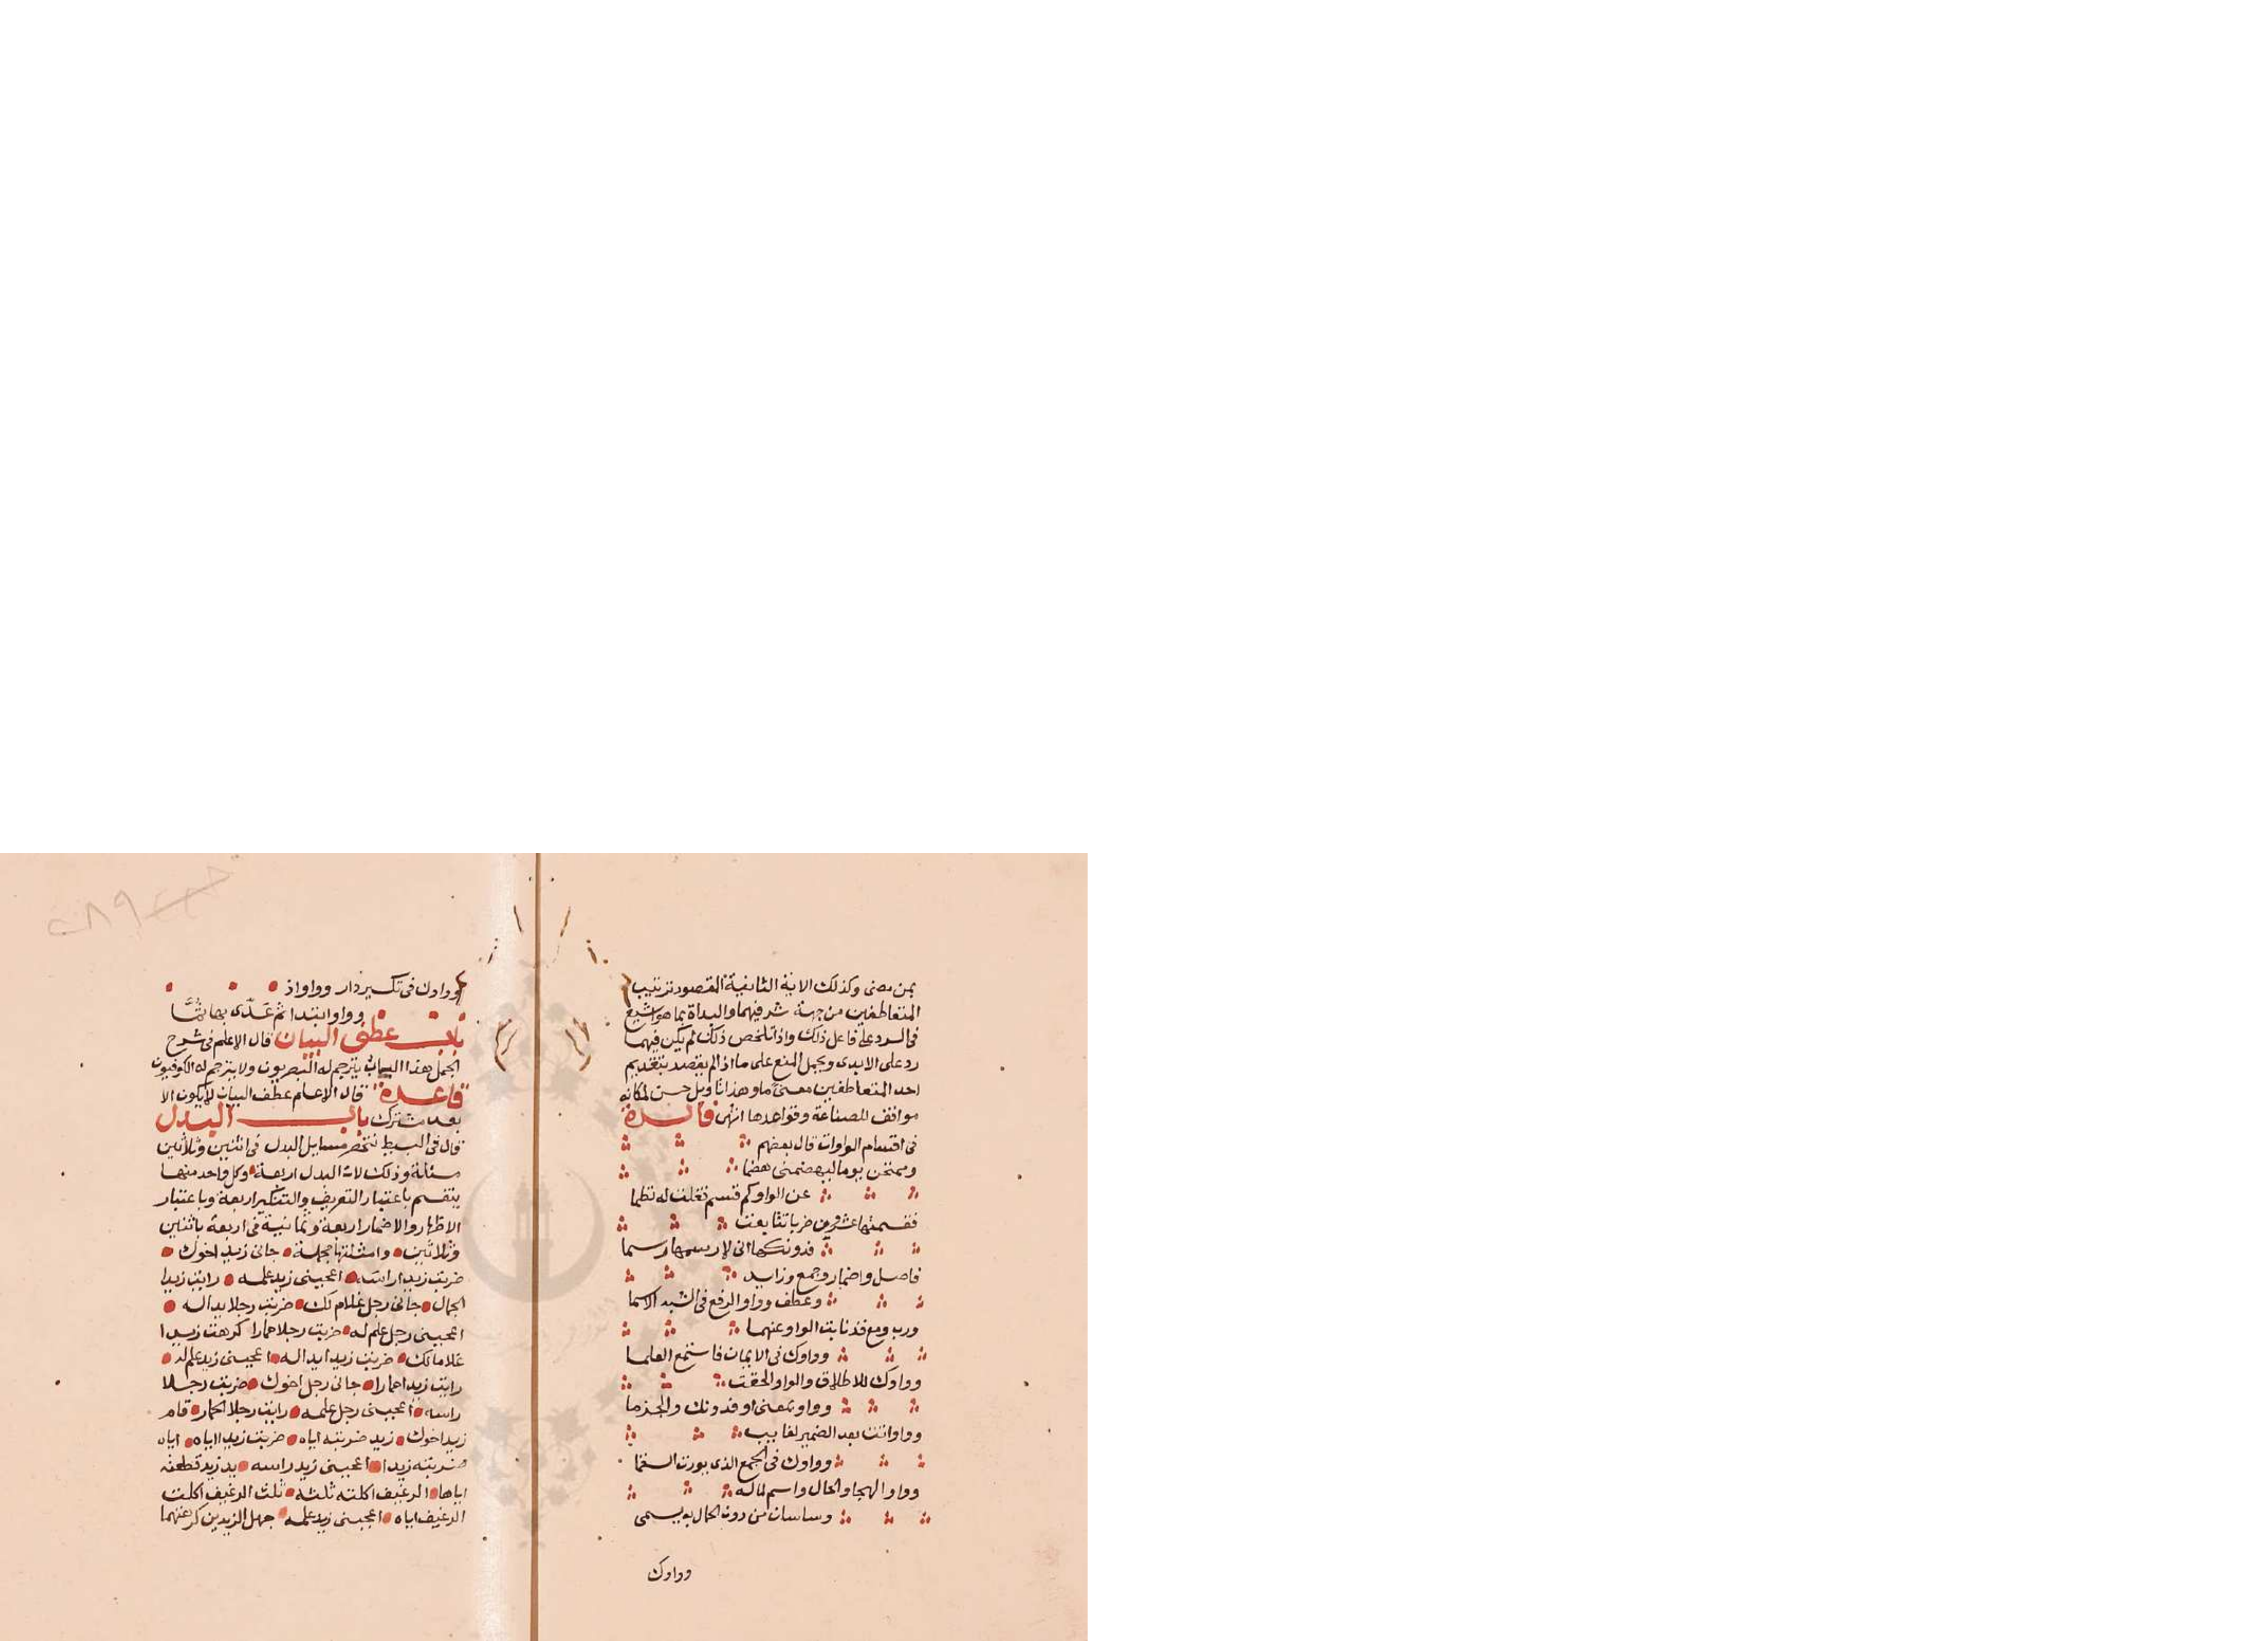 بمن مضى وكذلك الاية الثانية المقصود ترتيب
المتعاطفين من جهة شرفيهما والبداة بما هو اشيع
فى الرد على فاعل ذلك واذا تلخص ذلك لم يكن فيهما
رد على الابدى ويحمل المنع على ما اذا لم يقصد بتقديم
احد المتعاطفين معنى ما وهذا تاويل حسن لكانه
موافق للصناعة وقواعدها انتهى فائدة
فى اقسام الواوات قال بعضهم
وممتحن يوما ليهضمنى هضما
عن الواو كم قسم نظمت له نظما
فقسمتها عشرون ضربا تتابعت
فدونكها انى لارسمها رسما
فاصل واضمار وجمع وزايد
وعطف وواو الرفع فى الستة الاسما
ورب ومع قد نابت الواو عنهما
وواوك فى الايمان فاستمع العلما
وواوك للاطلاق والواو الحقت
وواو بمعنى او فدونك والجزما
وواو اتت بعد الضمير لغايب
وواوك فى الجمع الذى يورث السقما
وواو الهجا والحال واسم لما له
وساسان من دون الجمال به يسمى
وواوك
وواوك فى تكسير دار وواو اذ
وواو ابتدا ثم عدى بها تما
باب عطف البيان قال الاعلم فى شرح
الجمل هذا الباب يترجم له البصريون ولا يترجم له الكوفيون
قاعدة قال الاعلم عطف البيان لا يكون الا
بعد مشترك باب البدل
قال فى البسيط تنحصر مسايل البدل فى اثنين وثلاثين
مسئلة وذلك لان البدل اربعة وكل واحد منها
ينقسم باعتبار التعريف والتنكير اربعة وباعتبار
الاظهار والاضمار اربعة وثمانية فى اربعة باثنين
وثلاثين وامثلتها مجملة جانى زيد اخوك
ضربت زيدا راسه اعجبنى زيد علمه رايت زيدا
الحمار جانى رجل غلام لك ضربت رجلا يدا له
اعجبنى رجل علم له ضربت رجلا حمارا كرهت زيدا
غلاما لك ضربت زيدا يدا له اعجبنى زيد علم له
رايت زيدا حمارا جانى رجل اخوك ضربت رجلا
راسه اعجبنى رجل علمه رايت رجلا الحمار قام
زيد اخوك زيد ضربته اياه ضربت زيدا اياه اياه
ضربته زيدا اعجبنى زيد راسه يد زيد قطعته
اياها الرغيف اكلته ثلثه ثلث الرغيف اكلت
الرغيف اياه اعجبنى زيد علمه جهل الزيدين كرهتهما